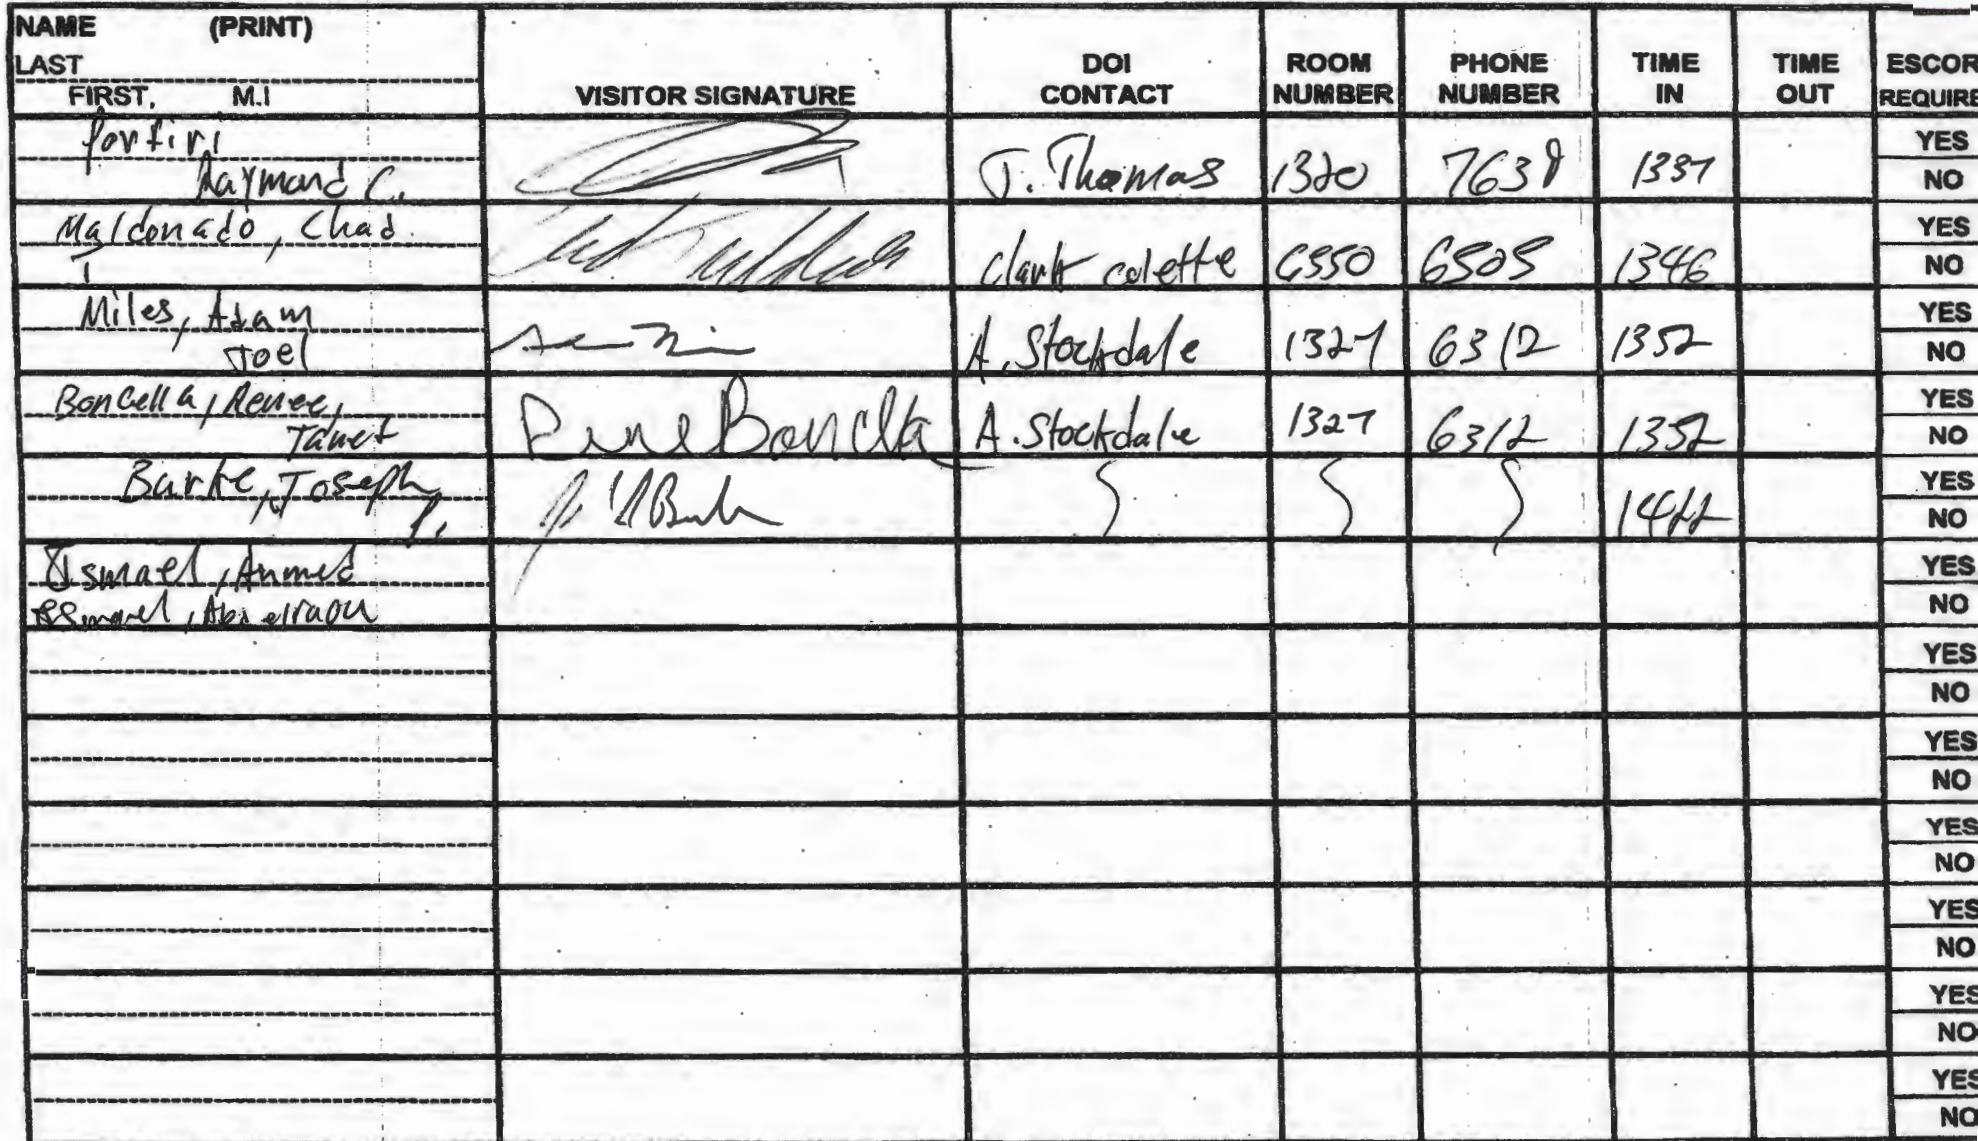 NAME (PRINT)
LAST
FIRST, M.I
VISITOR SIGNATURE
DOI CONTACT
ROOM NUMBER
PHONE NUMBER
TIME IN
TIME OUT
ESCOR
REQUIRE
Porfiri
Raymond C.
J. Thomas 1320 7638 1337
YES
NO
Maldonado, Chad
Clark Colette 6550 6505 1346
YES
NO
Miles, Adam
Joel
A. Stockdale 1327 6312 1352
YES
NO
Boncella, Renee,
Janet
Rene Boncella
A. Stockdale 1327 6312 1352
YES
NO
Burke, Joseph
P.
YES
NO
Ismael, Ahmed
YES
NO
YES
NO
YES
NO
YES
NO
YES
NO
YES
NO
YES
NO